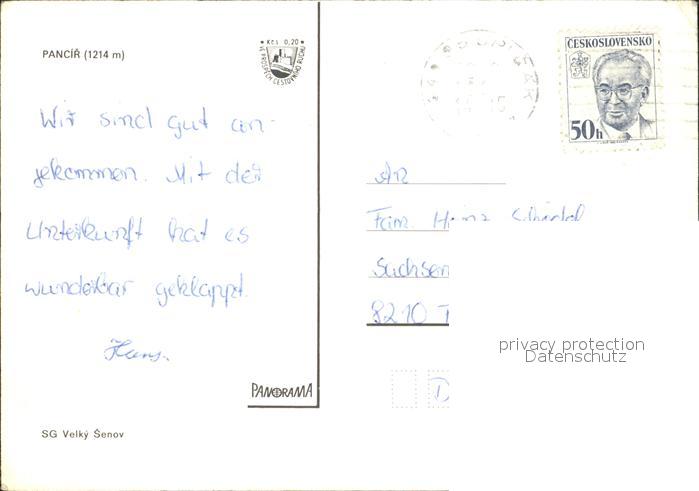 PANCÍŘ (1214 m)
Kčs 0,20
VE PROSPĚCH CESTOVNÍHO RUCHU
ČESKOSLOVENSKO
50h
Wir sind gut an-
gekommen. Mit der
Unterkunft hat es
wunderbar geklappt.
Hans.
An
Fam. Heinz
Sachsen
8210 T
D
PANORAMA
SG Velký Šenov
privacy protection
Datenschutz